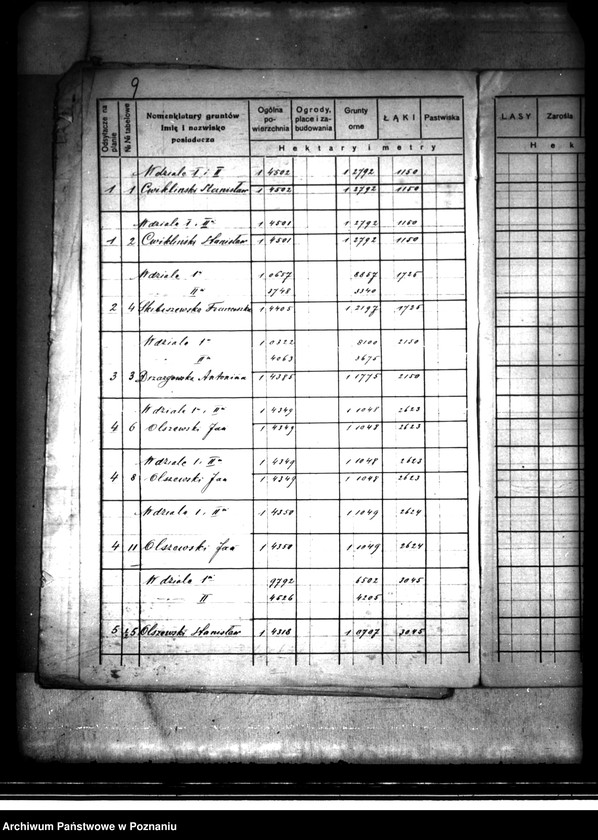 9
Odsyłacze na planie | №№ tabelowe | Nomenklatury gruntów Imię i nazwisko posiadacza | Ogólna powierzchnia | Ogrody, place i zabudowania | Grunty orne | ŁĄKI | Pastwiska | LASY | Zarośla
Hektary i metry | Hek
W dziale I i II 1 4502 1 2792 1150
1 1 Cwikliński Stanisław 1 4502 1 2792 1150
W dziale I i II 1 4501 1 2792 1150
1 2 Cwikliński Stanisław 1 4501 1 2792 1150
W dziale 1 1 0657 8857 1725
II 3748 3340
2 4 Franciszka 1 4405 1 2197 1725
W dziale 1 1 0322 8100 2150
II 4063 3675
3 3 Antonina 1 4385 1 1775 2150
W dziale 1 i II 1 4349 1 1048 2623
4 6 Olszewski Jan 1 4349 1 1048 2623
W dziale 1 i II 1 4349 1 1048 2623
4 8 Olszewski Jan 1 4349 1 1048 2623
W dziale 1 i II 1 4350 1 1049 2624
4 11 Olszewski Jan 1 4350 1 1049 2624
W dziale 1 9792 6502 3045
II 4526 4205
5 5 Olszewski Stanisław 1 4318 1 0707 3045
Archiwum Państwowe w Poznaniu